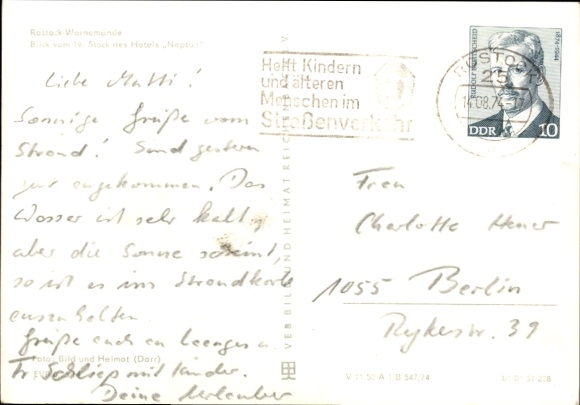 Rostock-Warnemünde
Blick vom 18. Stock des Hotels „Neptun"
Liebe Mutti!
Sonnige Grüße vom
Strand! Sind gestern
gut angekommen. Das
Wasser ist sehr kalt,
aber die Sonne scheint,
so ist es im Strandkorb
auszuhalten.
Grüße auch an
Foto: Bild und Heimat (Darr)
Fr. Schliep mit Kinder.
Deine Urlauber
VEB BILD UND HEIMAT REICHENBACH V
Helft Kindern
und älteren
Menschen im
Straßenverkehr
ROSTOCK
25
14.08.74
RUDOLF BREITSCHEID
1874-1944
DDR 10
Frau
Charlotte
1055 Berlin
Rykestr. 39
V 11 50 A 1/B 547/74